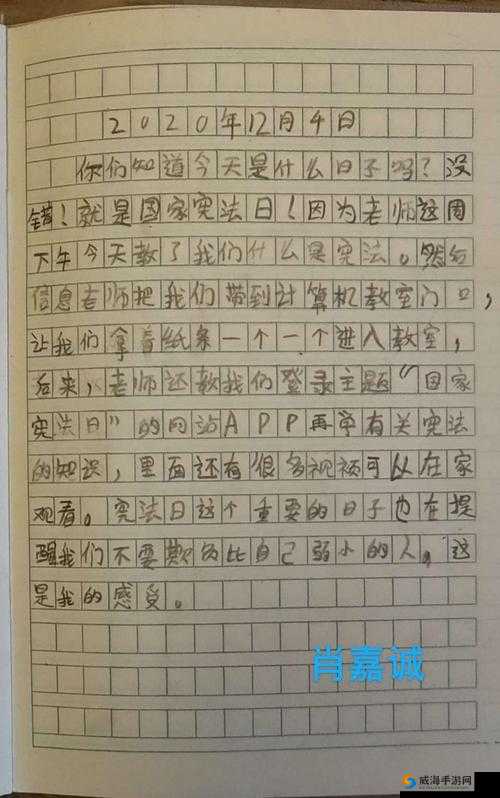 2020年12月4日
你们知道今天是什么日子吗？没
错！就是国家宪法日！因为老师这周
下午今天教了我们什么是宪法。然后
信息老师把我们带到计算机教室门口，
让我们拿着纸条一个一个进入教室，
后来，老师还教我们登录主题“国家
宪法日”的网站APP再学有关宪法
的知识，里面还有很多视频可以在家
观看。宪法日这个重要的日子也在提
醒我们不要欺负比自己弱小的人。这
是我的感受。
肖嘉诚
威海手游网